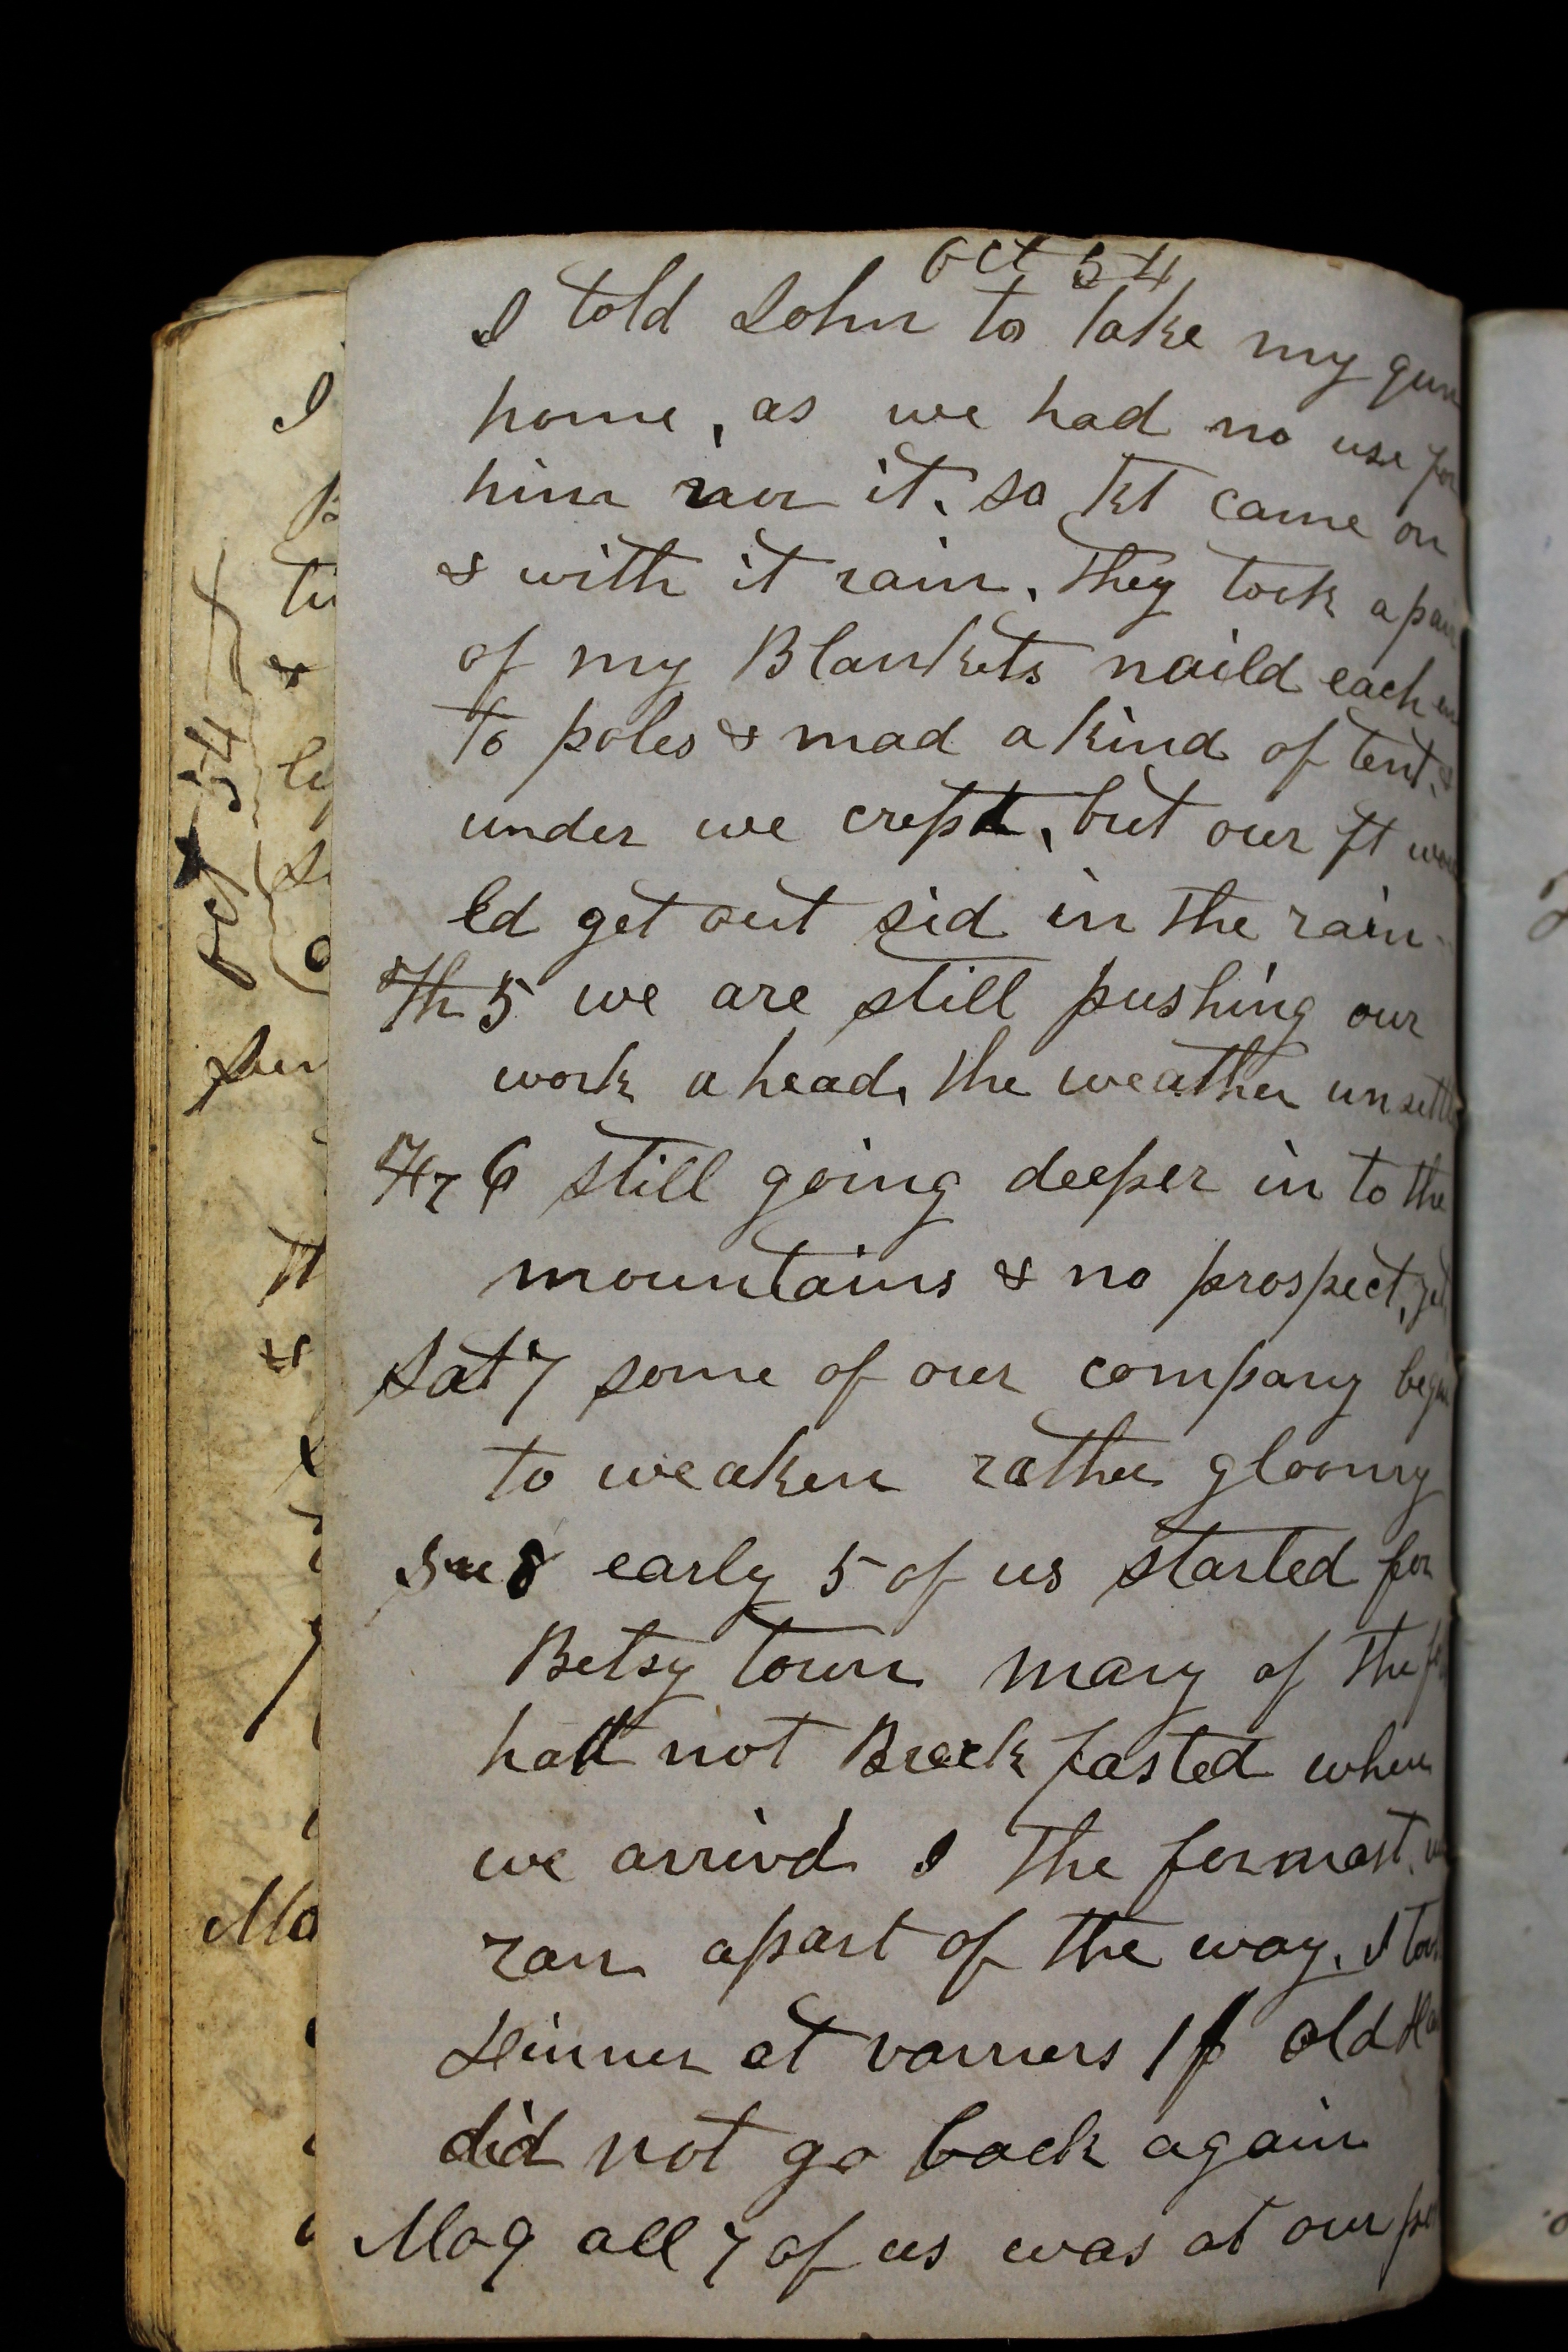 Oct 54
I told John to take my gun
home, as we had no use for
him nor it. so Nt came on
& with it rain. they took a pair
of my Blankets naild each
to poles & mad a kind of tent &
under we crept, but our ft wou
ld get out sid in the rain
Th 5 we are still pushing our
work a head, the weather unsettle
Fr 6 still going deeper in to the
mountains & no prospect, yet
Sat 7 some of our company began
to weaken rather gloomy
Su 8 early 5 of us started for
Betsy town many of the
had not Breck fasted when
we arrivd I the formost.
ran apart of the way. I took
dinner at varners old
did not go back again
Mo 9 all 7 of us was at our
Oct 54
I
&
Sun
Th
&
Mo